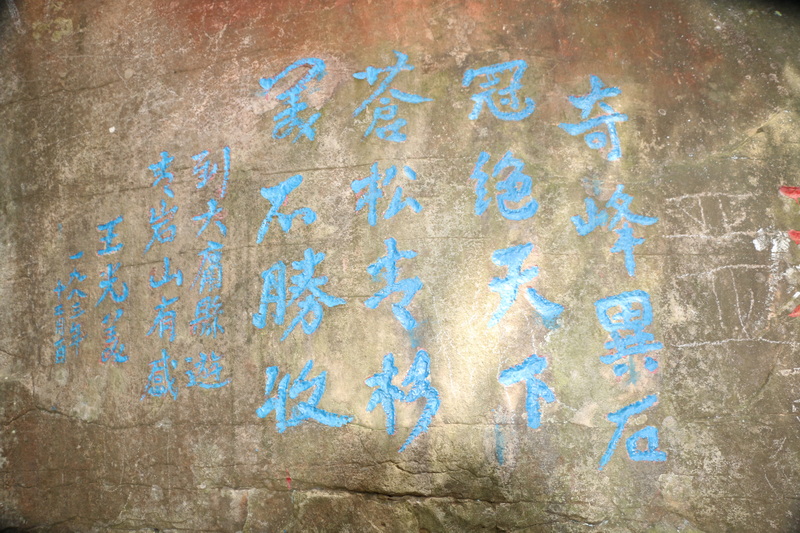 奇峰異石
冠绝天下
蒼松青杉
美不勝收
到大庸縣遊
青岩山有感
王光美
一九八年